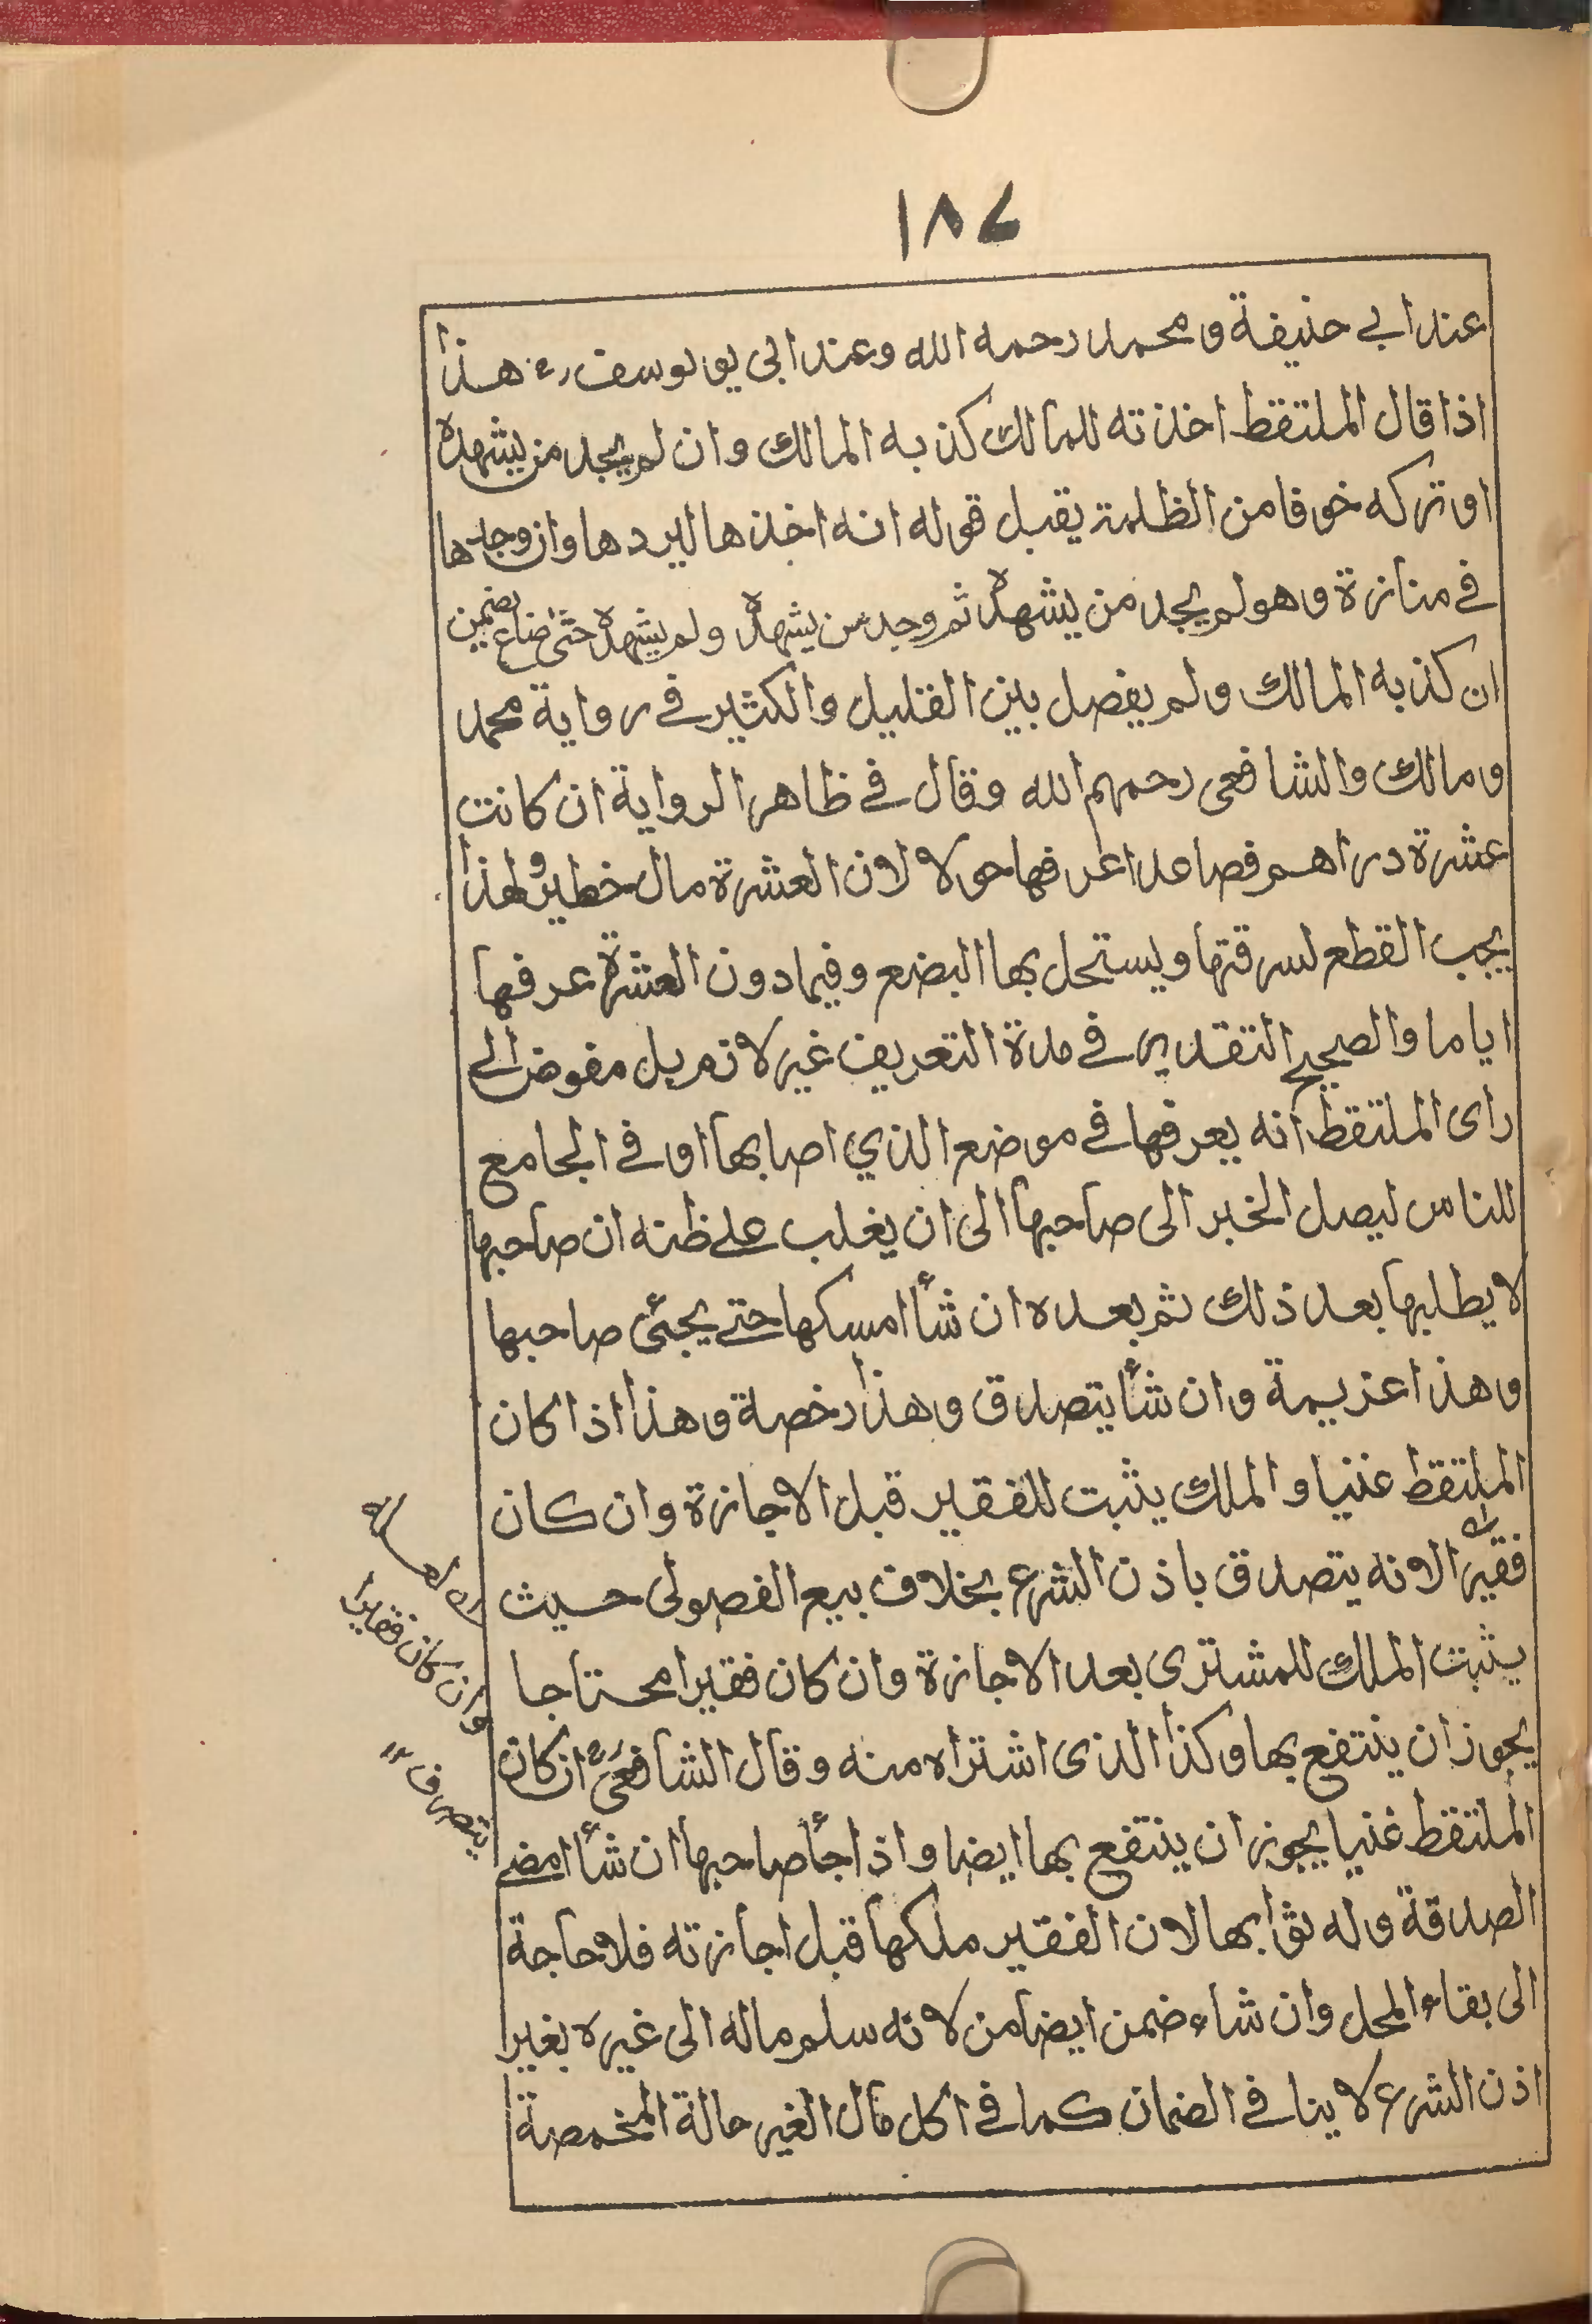 ١٨٤
عند ابي حنيفة و محمد رحمه الله وعند ابى يو يوسف رح هذا
اذا قال الملتقط اخذته للمالك كذبه المالك وان لم يجد من يشهده
او تركه خوفا من الظلمة يقبل قوله انه اخذها ليردها وان وجدها
في منازة وهو لم يجد من يشهده ثم وجد من يشهده ولم يشهده حتى ضاع يضمن
ان كذبه المالك ولم يفصل بين القليل والكثير في رواية محمد
ومالك والشافعى رحمهم الله وقال في ظاهر الرواية ان كانت
عشرة دراهم فصاعدا عرفها حولا لان العشرة مال خطير ولهذا
يجب القطع لسرقتها ويستحل بها البضع وفيما دون العشرة عرفها
اياما والصحيح التقدير في مدة التعريف غير لازم بل مفوض الى
راى الملتقط انه يعرفها في موضع الذي اصابها او في الجامع
للناس ليصل الخبر الى صاحبها الى ان يغلب على ظنه ان صاحبها
لا يطلبها بعد ذلك ثم بعده ان شأ امسكها حتى يجئى صاحبها
وهذا عزيمة وان شأ يتصدق وهذا رخصة وهذا اذا كان
الملتقط غنيا والملك يثبت للفقير قبل الاجازة وان كان
فقيرا لانه يتصدق باذن الشرع بخلاف بيع الفصولى حيث
يثبت الملك للمشترى بعد الاجازة وان كان فقيرا محتاجا
يجوز ان ينتفع بها وكذا الذى اشتراه منه وقال الشافعى رح ان كان
الملتقط غنيا يجوز ان ينتفع بها ايضا واذا جأ صاحبها ان شأ امضى
الصدقة وله ثوابها لان الفقير ملكها قبل اجازته فلا حاجة
الى بقاء المحل وان شاء ضمن ايضا من لانه سلم ماله الى غيره بغير
اذن الشرع لا ينافي الضمان كما في اكل مال الغير حالة المخمصة
وان كان فقيرا
يتصرف ١٢